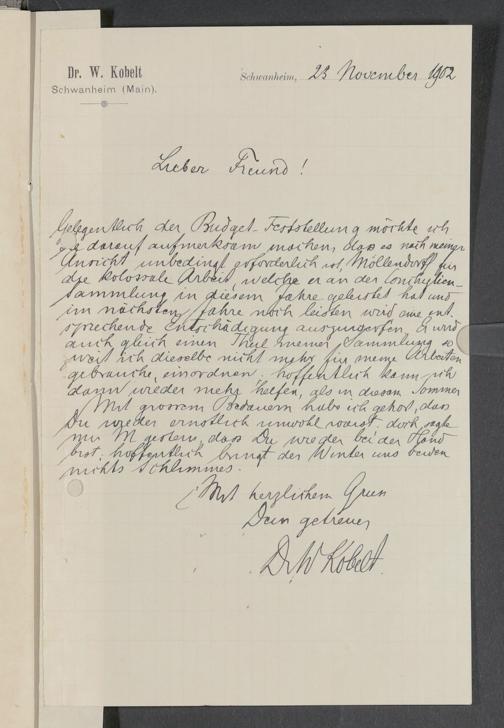 Dr. W. Kobelt
Schwanheim (Main).
Schwanheim, 23 November 1902
Lieber Freund!
Gelegentlich der Budget-Feststellung möchte ich
darauf aufmerksam machen, dass es nach meiner
Ansicht unbedingt erforderlich ist, Möllendorff für
die kolossale Arbeit, welche er an der Conchylien-
sammlung in diesem Jahre geleistet hat und
im nächsten Jahre noch leisten wird eine ent-
sprechende Entschädigung auszuwerfen. Er wird
auch gleich einen Theil meiner Sammlung so
weit ich dieselbe nicht mehr für meine Arbeiten
gebrauche, einordnen. hoffentlich kann ich
dann wieder mehr helfen, als in diesem Sommer
Mit grossem Bedauern habe ich gehört, dass
Du wieder ernstlich unwohl warst; doch sagte
mir M. gestern, dass Du wieder bei der Hand
bist; hoffentlich bringt der Winter uns beiden
nichts Schlimmes.
Mit herzlichem Gruss
Dein getreuer
Dr W Kobelt.